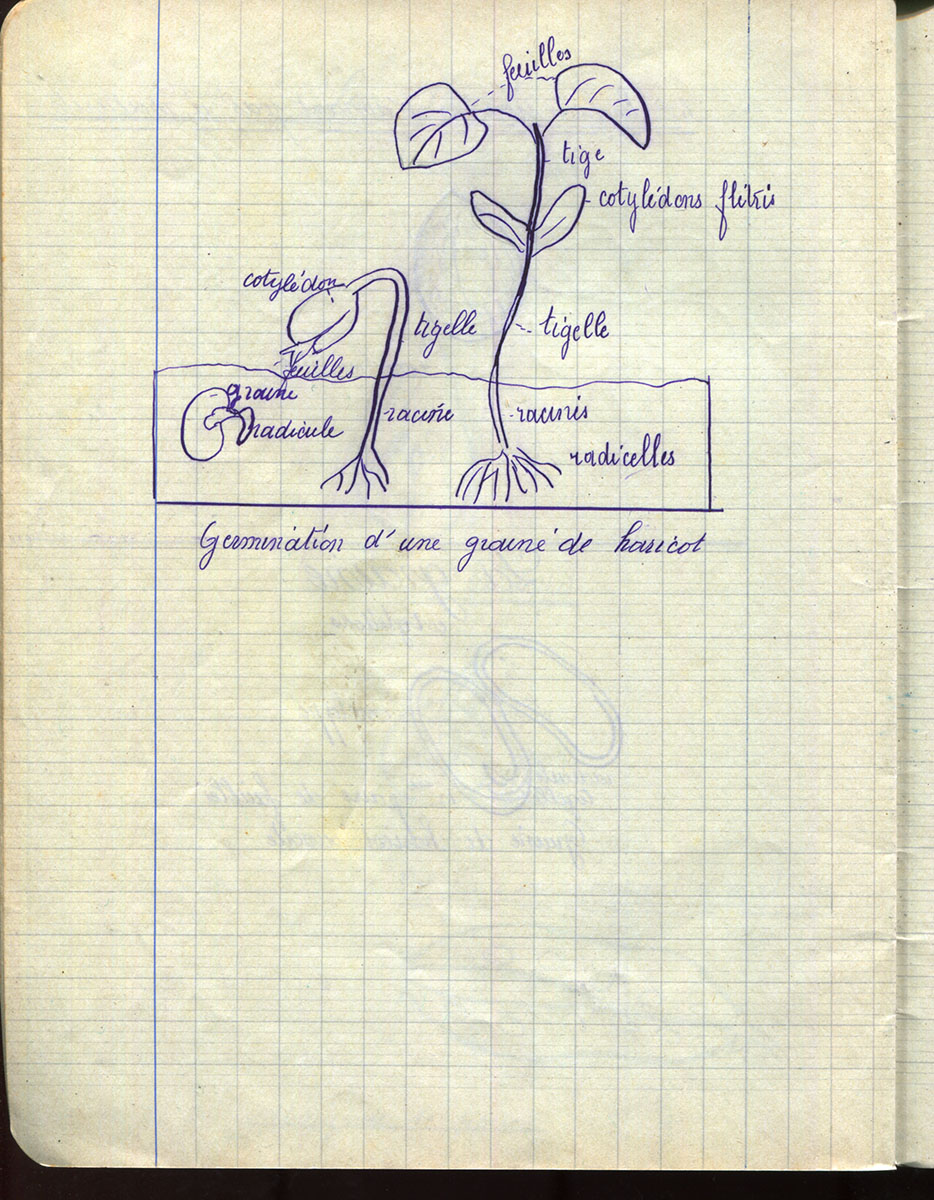 feuilles
tige
cotylédons flétris
cotylédon
tigelle
tigelle
feuilles
graine
radicule
racine
racinis
radicelles
Germination d'une graine de haricot